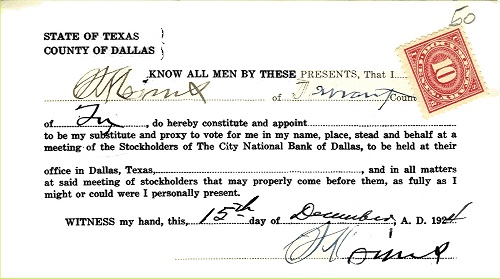 50
STATE OF TEXAS
COUNTY OF DALLAS
10
KNOW ALL MEN BY THESE PRESENTS, That I
of Tarrant Coun
of , do hereby constitute and appoint
to be my substitute and proxy to vote for me in my name, place, stead and behalf at a
meeting of the Stockholders of The City National Bank of Dallas, to be held at their
office in Dallas, Texas, , and in all matters
at said meeting of stockholders that may properly come before them, as fully as I
might or could were I personally present.
WITNESS my hand, this, 15th day of December, A. D. 1924